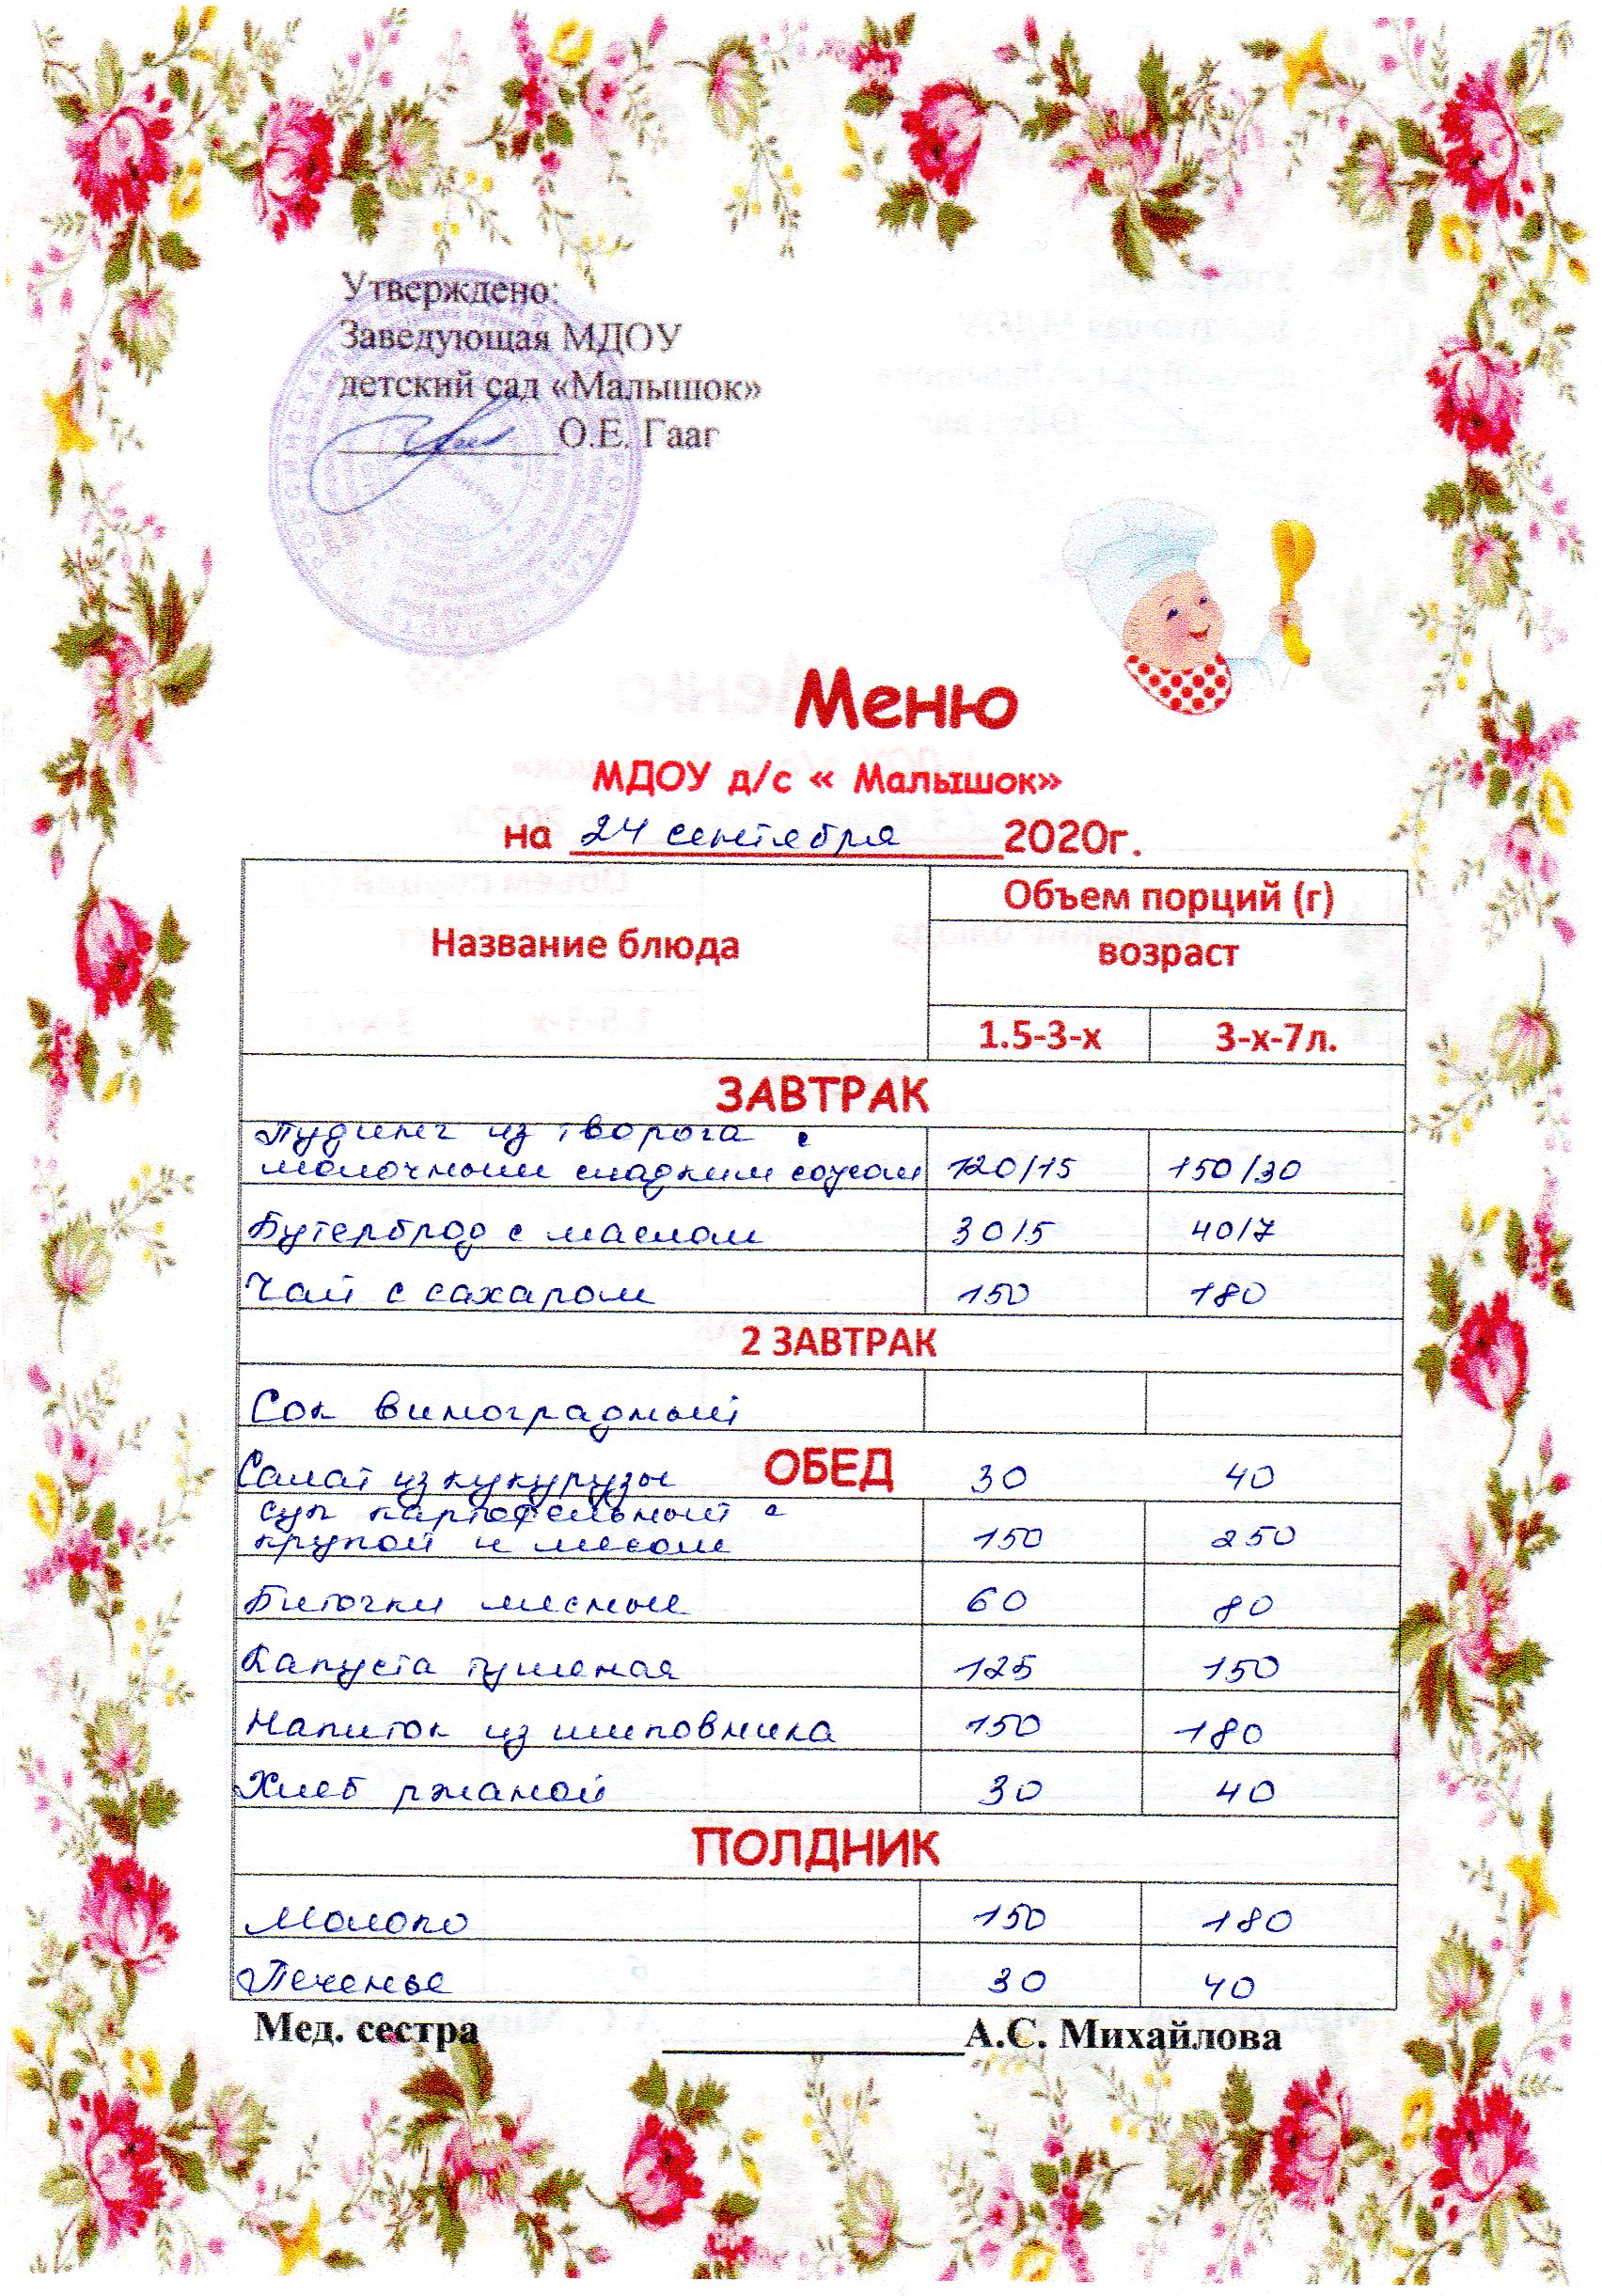 Утверждено:
Заведующая МДОУ
детский сад «Малышок»
О.Е. Гааг
Меню
МДОУ д/с « Малышок»
на 24 сентября 2020г.
Название блюда
Объем порций (г)
возраст
1.5-3-х 3-х-7л.
ЗАВТРАК
Пудинг из творога с
молочным сладким соусом 120/15 150/30
Бутерброд с маслом 30/5 40/7
Чай с сахаром 150 180
2 ЗАВТРАК
Сок виноградный
Салат из кукурузы ОБЕД 30 40
суп картофельный с
крупой и мясом 150 250
Биточки мясные 60 80
Капуста тушеная 125 150
Напиток из шиповника 150 180
Хлеб ржаной 30 40
ПОЛДНИК
Молоко 150 180
Печенье 30 40
Мед. сестра А.С. Михайлова